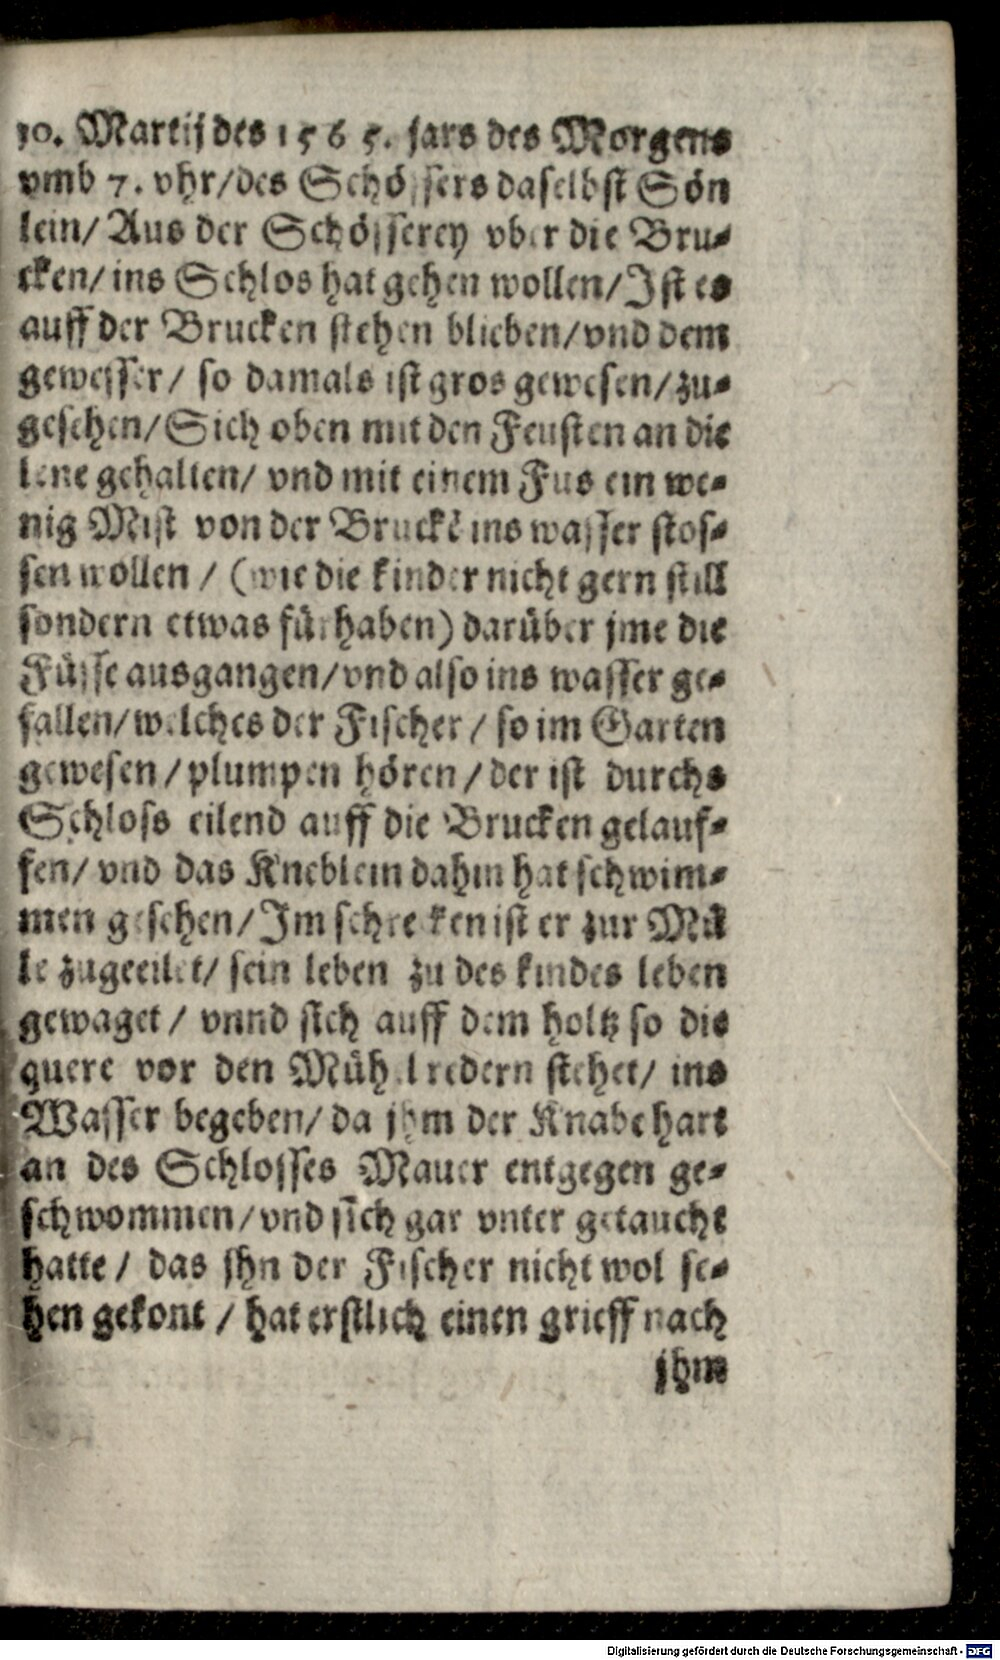 10. Martij des 1565. jars des Morgens
vmb 7. vhr/des Schössers daselbst Sön
lein/ Aus der Schösserey vber die Bru-
cken/ins Schlos hat gehen wollen/Ist es
auff der Brucken stehen blieben/vnd dem
gewesser/ so damals ist gros gewesen/zu-
gesehen/Sich oben mit den Feusten an die
lene gehalten/ vnd mit einem Fus ein we-
nig Mist von der Bruckē ins wasser stos-
sen wollen / (wie die kinder nicht gern still
sondern etwas fürhaben) darüber jme die
Füsse ausgangen/vnd also ins wasser ge-
fallen/welches der Fischer / so im Garten
gewesen/plumpen hören/der ist durchs
Schloss eilend auff die Brucken gelauf-
fen/ vnd das Kneblein dahin hat schwim-
men gesehen/Im schrecken ist er zur Mü
le zugeeilet/ sein leben zu des kindes leben
gewaget / vnnd sich auff dem holtz so die
quere vor den Mühlredern stehet/ ins
Wasser begeben/ da jhm der Knabe hart
an des Schlosses Mauer entgegen ge-
schwommen/vnd sich gar vnter getaucht
hatte / das jhn der Fischer nicht wol se-
hen gekont / hat erstlich einen grieff nach
jhm
Digitalisierung gefördert durch die Deutsche Forschungsgemeinschaft - DFG